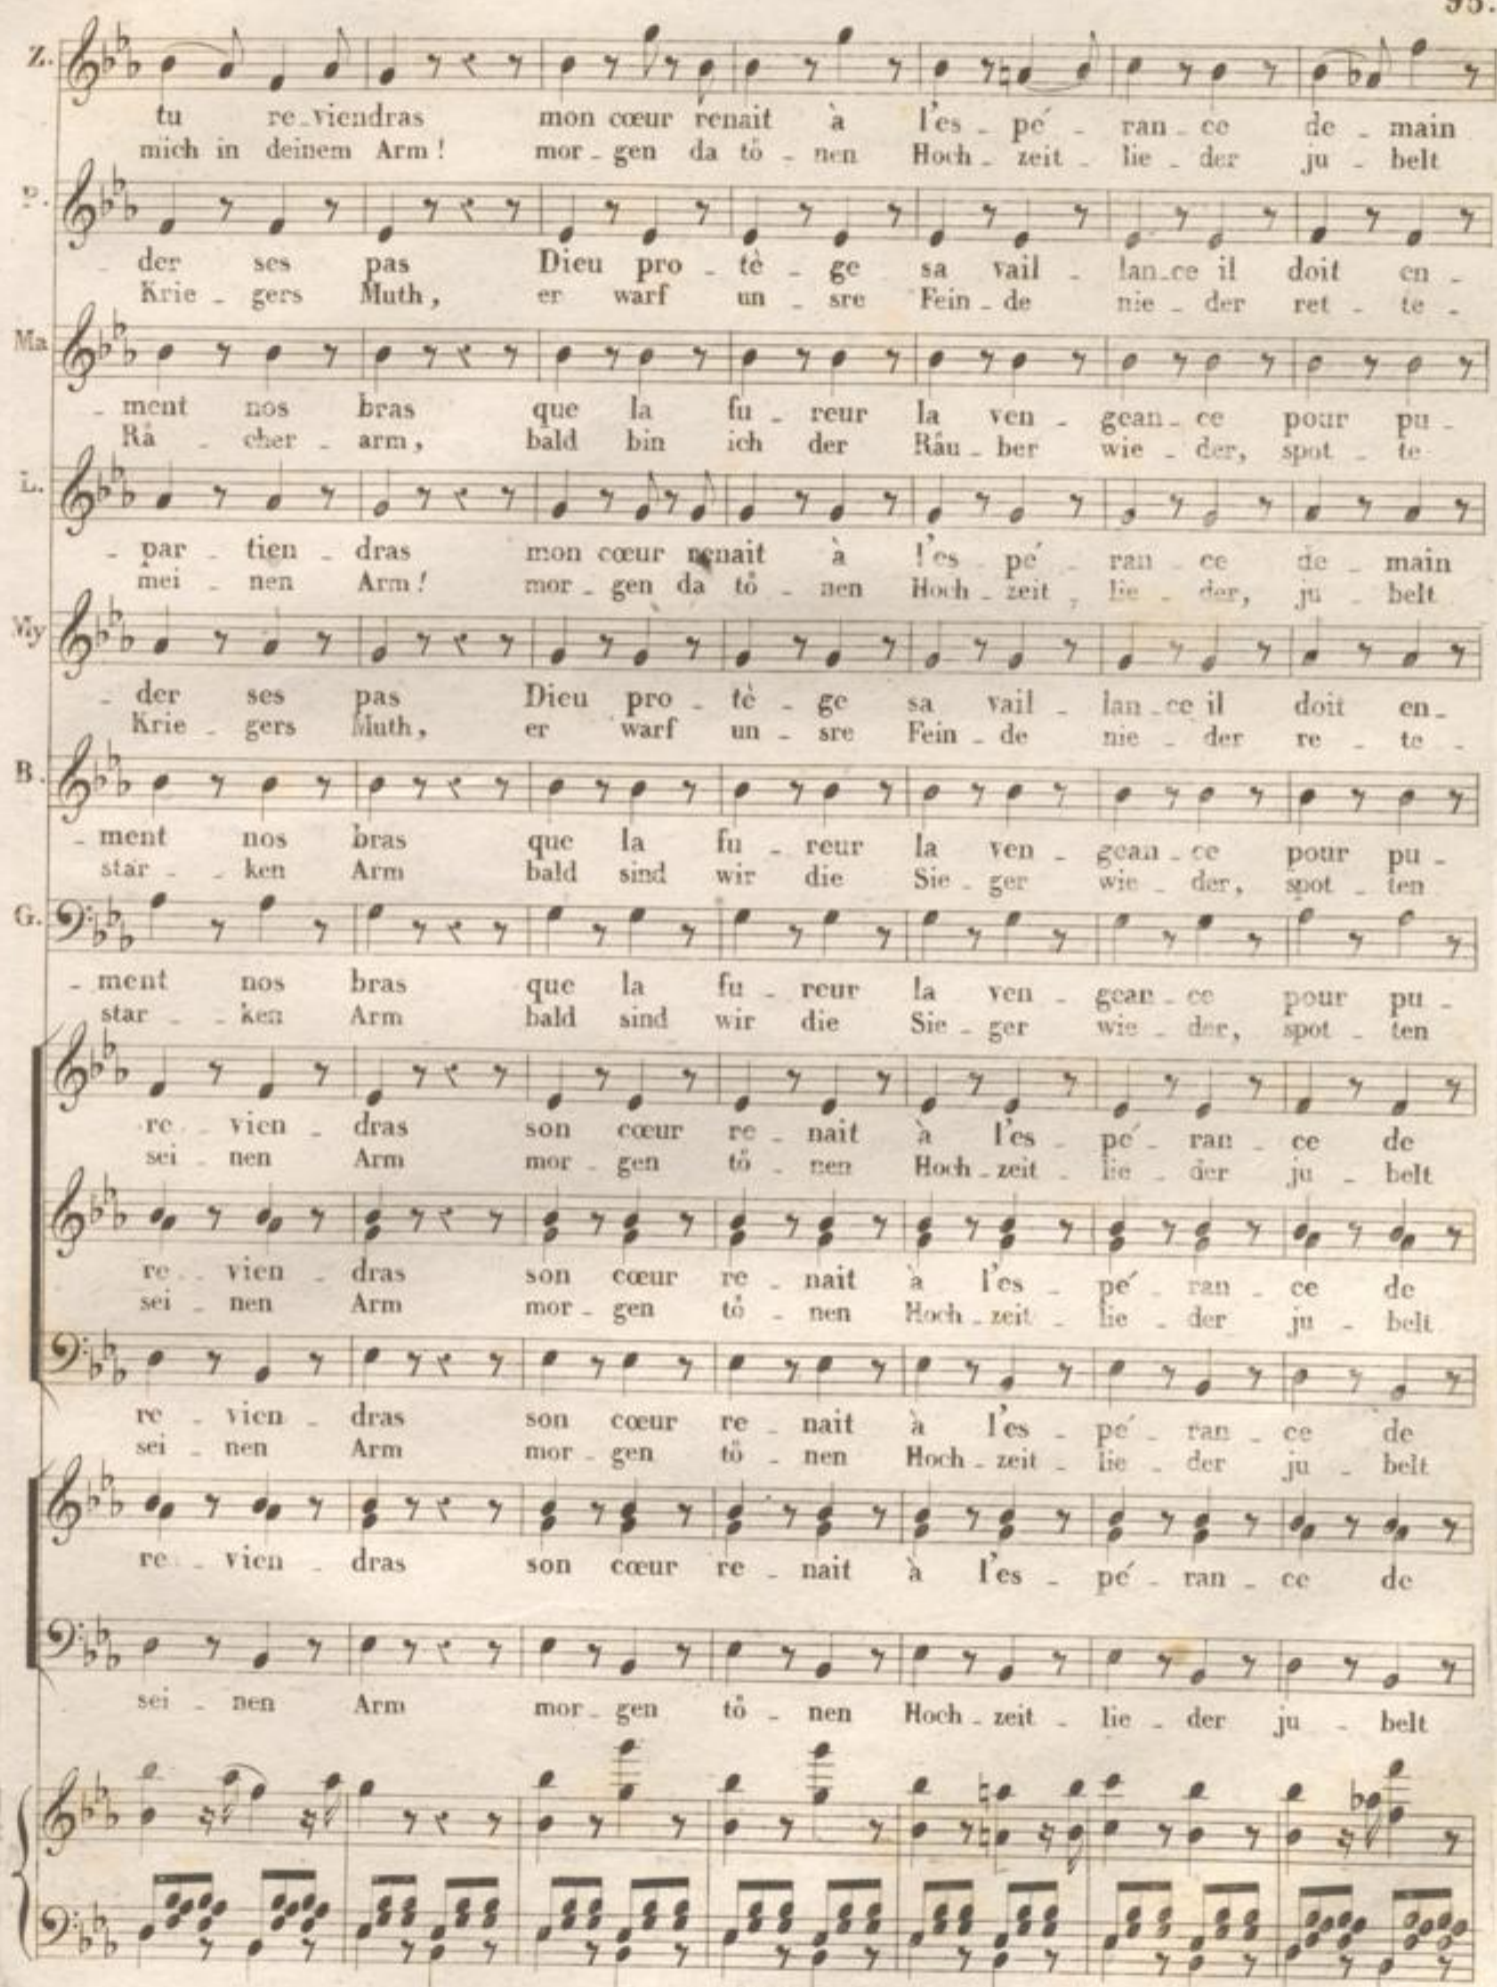 95.
Z.
tu re-viendras mon cœur renait à l'es - pé - ran - ce de - main
mich in deinem Arm! mor - gen da tö - nen Hoch - zeit - lie - der ju - belt
P.
- der ses pas Dieu pro - tè - ge sa vail - lan-ce il doit en -
Krie - gers Muth, er warf un - sre Fein - de nie - der ret - te -
Ma
- ment nos bras que la fu - reur la ven - gean - ce pour pu -
Rä - cher - arm, bald bin ich der Räu - ber wie - der, spot - te
L.
- par - tien - dras mon cœur renait à l'es - pé - ran - ce de - main
mei - nen Arm! mor - gen da tö - nen Hoch - zeit - lie - der, ju - belt
My
- der ses pas Dieu pro - tè - ge sa vail - lan - ce il doit en -
Krie - gers Muth, er warf un - sre Fein - de nie - der re - te -
B.
- ment nos bras que la fu - reur la ven - gean - ce pour pu -
star - ken Arm bald sind wir die Sie - ger wie - der, spot - ten
G.
- ment nos bras que la fu - reur la ven - gean - ce pour pu -
star - ken Arm bald sind wir die Sie - ger wie - der, spot - ten
re - vien - dras son cœur re - nait à l'es - pé - ran - ce de
sei - nen Arm mor - gen tö - nen Hoch - zeit - lie - der ju - belt
re - vien - dras son cœur re - nait à l'es - pé - ran - ce de
sei - nen Arm mor - gen tö - nen Hoch - zeit - lie - der ju - belt
re - vien - dras son cœur re - nait à l'es - pé - ran - ce de
sei - nen Arm mor - gen tö - nen Hoch - zeit - lie - der ju - belt
re - vien - dras son cœur re - nait à l'es - pé - ran - ce de
sei - nen Arm mor - gen tö - nen Hoch - zeit - lie - der ju - belt